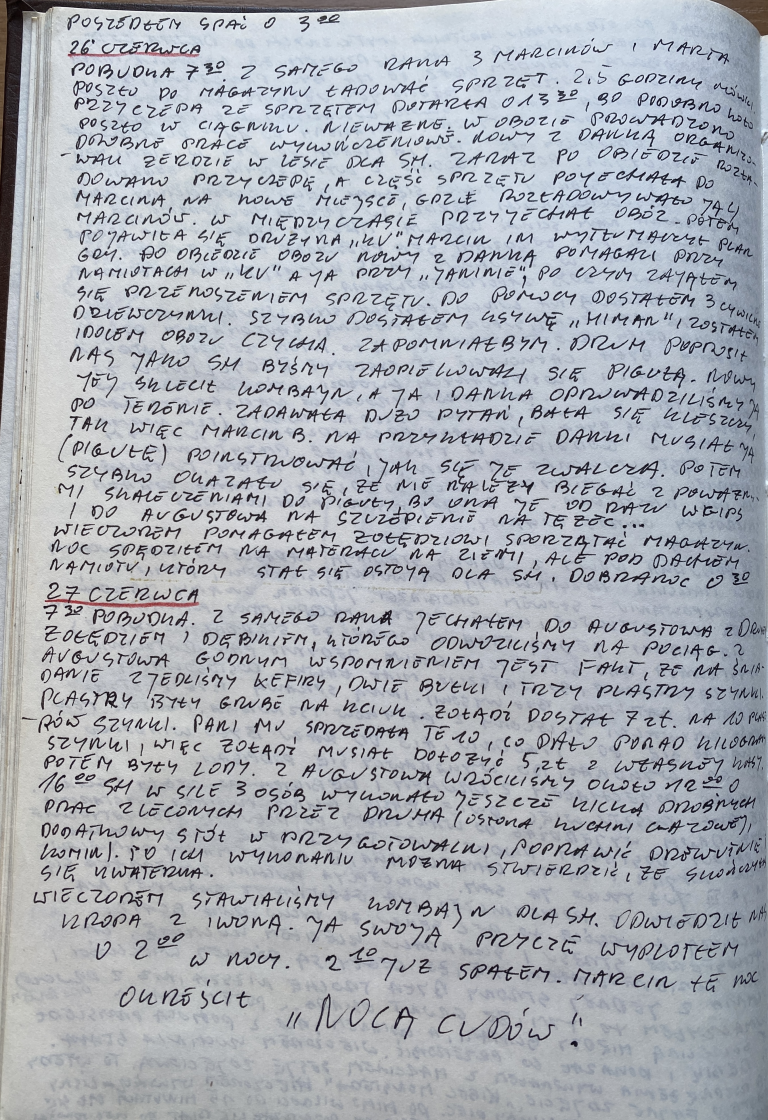 POSZEDŁEM SPAĆ O 3⁰⁰
26 CZERWCA
POBUDKA 7³⁰. Z SAMEGO RANA 3 MARCINÓW I MARTA
POSZŁO DO MAGAZYNU ŁADOWAĆ SPRZĘT. 2,5 GODZINY
PRZYCZEPA ZE SPRZĘTEM DOTARŁA O 13³⁰, BO PODOBNO KOŁO
POSZŁO W CIĄGNIKU. NIEWAŻNE, W OBOZIE PROWADZONO
DROBNE PRACE WYKOŃCZENIOWE. NOWY Z DANKĄ ORGANIZO-
WALI ŻERDZIE W LESIE DLA SH. ZARAZ PO OBIEDZIE ROZŁA-
DOWANO PRZYCZEPĘ, A CZĘŚĆ SPRZĘTU POJECHAŁA DO
MARCINA NA NOWE MIEJSCE, GDZIE ROZŁADOWYWAŁO JĄ
MARCINÓW. W MIĘDZYCZASIE PRZYJECHAŁ OBÓZ. POTEM
POJAWIŁA SIĘ DRUŻYNA „KV" MARCIN IM WYTŁUMACZYŁ PLAN
GRY. PO OBIEDZIE OBOZU NOWY Z DANKĄ POMAGALI PRZY
NAMIOTACH W „KV" A JA PRZY „JANINIE", PO CZYM ZAJĄŁEM
SIĘ PRZENOSZENIEM SPRZĘTU. DO POMOCY DOSTAŁEM 3 CYWILNE
DZIEWCZYNKI. SZYBKO DOSTAŁEM KSYWĘ „HIMAN" I ZOSTAŁEM
IDOLEM OBOZU CZYCHA. ZAPOMNIAŁBYM. DRUH POPROSIŁ
NAS JAKO SH BYŚMY ZAOPIEKOWALI SIĘ PIGUŁĄ. NOWY
JEJ SKLECIŁ KOMBAJN, A JA I DANKA OPROWADZILIŚMY JĄ
PO TERENIE. ZADAWAŁA DUŻO PYTAŃ, BAŁA SIĘ KLESZCZY,
TAK WIĘC MARCIN B. NA PRZYKŁADZIE DANKI MUSIAŁ JĄ
(PIGUŁĘ) POINSTRUOWAĆ, JAK SIĘ JE ZWALCZA. POTEM
SZYBKO OKAZAŁO SIĘ, ŻE NIE NALEŻY BIEGAĆ Z POWAŻNY-
MI SKALECZENIAMI DO PIGUŁY, BO ONA JE OD RAZU W GIPS
I DO AUGUSTOWA NA SZCZEPIENIE NA TĘŻEC...
WIECZOREM POMAGAŁEM ŻOŁĘDZIOWI SPRZĄTAĆ MAGAZYN.
NOC SPĘDZIŁEM NA MATERACU NA ZIEMI, ALE POD DACHEM
NAMIOTU, KTÓRY STAŁ SIĘ OSTOJĄ DLA SH. DOBRANOC 0³⁰
27 CZERWCA
7³⁰ POBUDKA. Z SAMEGO RANA JECHAŁEM DO AUGUSTOWA Z
ŻOŁĘDZIEM I DĘBIKIEM, KTÓREGO ODWOZILIŚMY NA POCIĄG. Z
AUGUSTOWA GODNYM WSPOMNIENIEM JEST FAKT, ŻE NA ŚNIA-
DANIE ZJEDLIŚMY KEFIRY, DWIE BUŁKI I TRZY PLASTRY SZYNKI.
PLASTRY BYŁY GRUBE NA KCIUK. ŻOŁĄDŹ DOSTAŁ 7 zł. NA 10 PLAST-
RÓW SZYNKI. PANI MU SPRZEDAŁA TE 10, CO DAŁO PONAD KILOGRAM
SZYNKI, WIĘC ŻOŁĄDŹ MUSIAŁ DOŁOŻYĆ 5,zł Z WŁASNEJ KASY.
POTEM BYŁY LODY. Z AUGUSTOWA WRÓCILIŚMY OKOŁO 12⁰⁰ O
16⁰⁰ SH W SILE 3 OSÓB WYKONAŁO JESZCZE KILKA DROBNYCH
PRAC ZLECONYCH PRZEZ DRUHA (OSŁONA KUCHNI GAZOWEJ,
DODATKOWY STÓŁ W PRZYGOTOWALNI, POPRAWIĆ DREWUTNIĘ
KOMIN). PO ICH WYKONANIU MOŻNA STWIERDZIĆ, ŻE SKOŃCZYŁA
SIĘ KWATERKA.
WIECZOREM STAWIALIŚMY KOMBAJN DLA SH. ODWIEDZIŁ NAS
KROPA Z IWONĄ. JA SWOJĄ PRYCZĘ WYPLOTŁEM
O 2⁰⁰ W NOCY. 2¹⁰ JUŻ SPAŁEM. MARCIN TĘ NOC
OKREŚLIŁ „NOCĄ CUDÓW!"